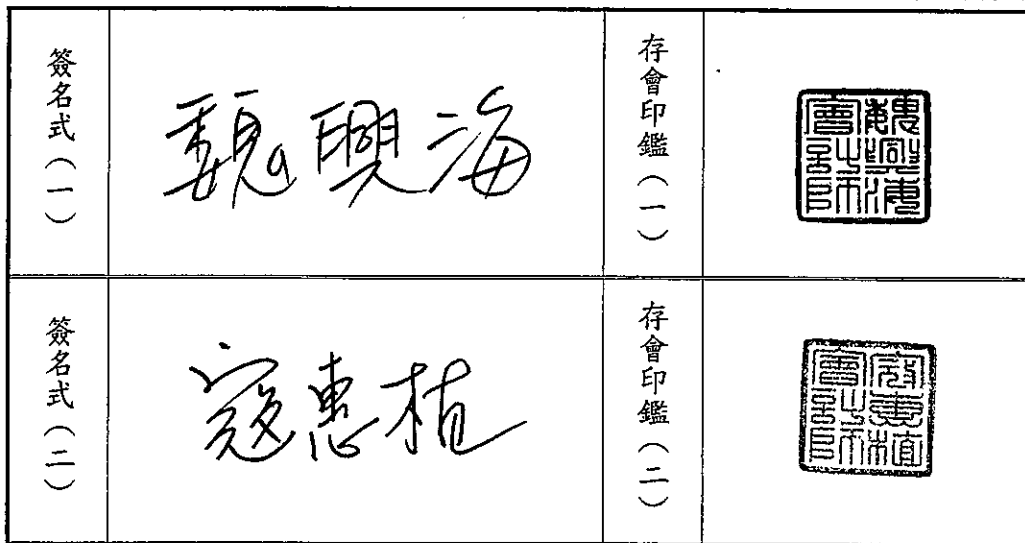 簽名式（一）
魏興海
存會印鑑（一）
魏興海
會計師
簽名式（二）
寇惠植
存會印鑑（二）
寇惠植
會計師